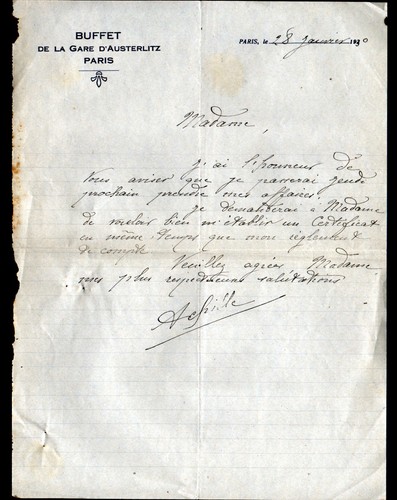 BUFFET
DE LA GARE D'AUSTERLITZ
PARIS
PARIS, le 28 Janvier 1930
Madame,
J'ai l'honneur de
vous aviser que je passerai jeudi
prochain prendre mes affaires.
Je demanderai à Madame
de vouloir bien m'établir un Certificat
en même temps que mon règlement
de compte
Veuillez agréer Madame
mes plus respectueuses salutations
Achille